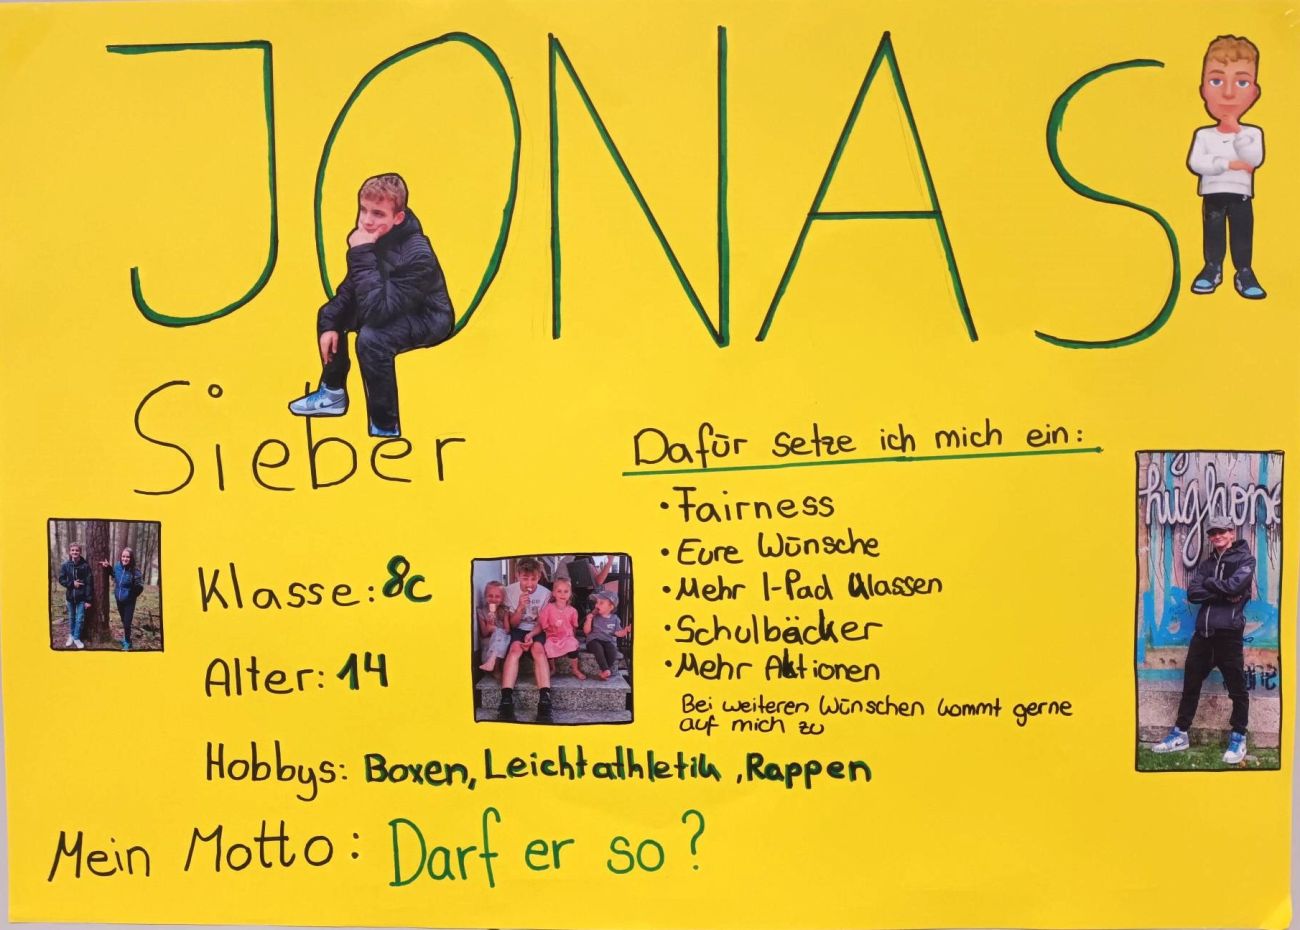 JONAS
Sieber
Klasse: 8c
Alter: 14
Hobbys: Boxen, Leichtathletik, Rappen
Mein Motto: Darf er so?
Dafür setze ich mich ein:
• Fairness
• Eure Wünsche
• Mehr I-Pad Klassen
• Schulbäcker
• Mehr Aktionen
Bei weiteren Wünschen kommt gerne
auf mich zu